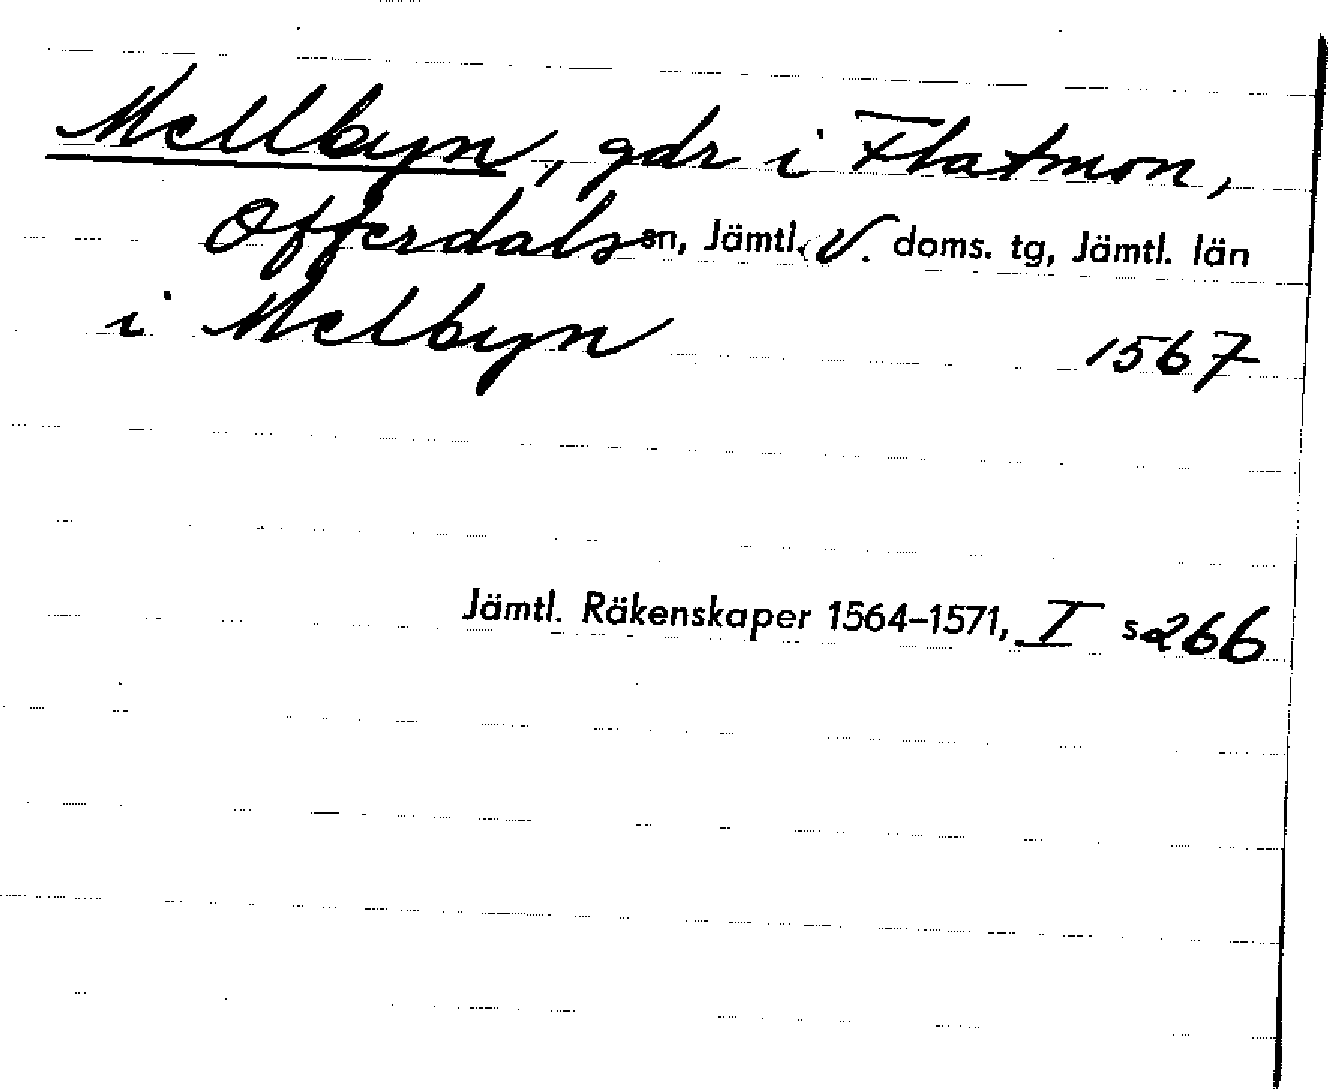 Mellbyn, gdr i Flatmon,
Offerdals sn, Jämtl. V. doms. tg, Jämtl. län
i Melbyn 1567
Jämtl. Räkenskaper 1564–1571, I s 266